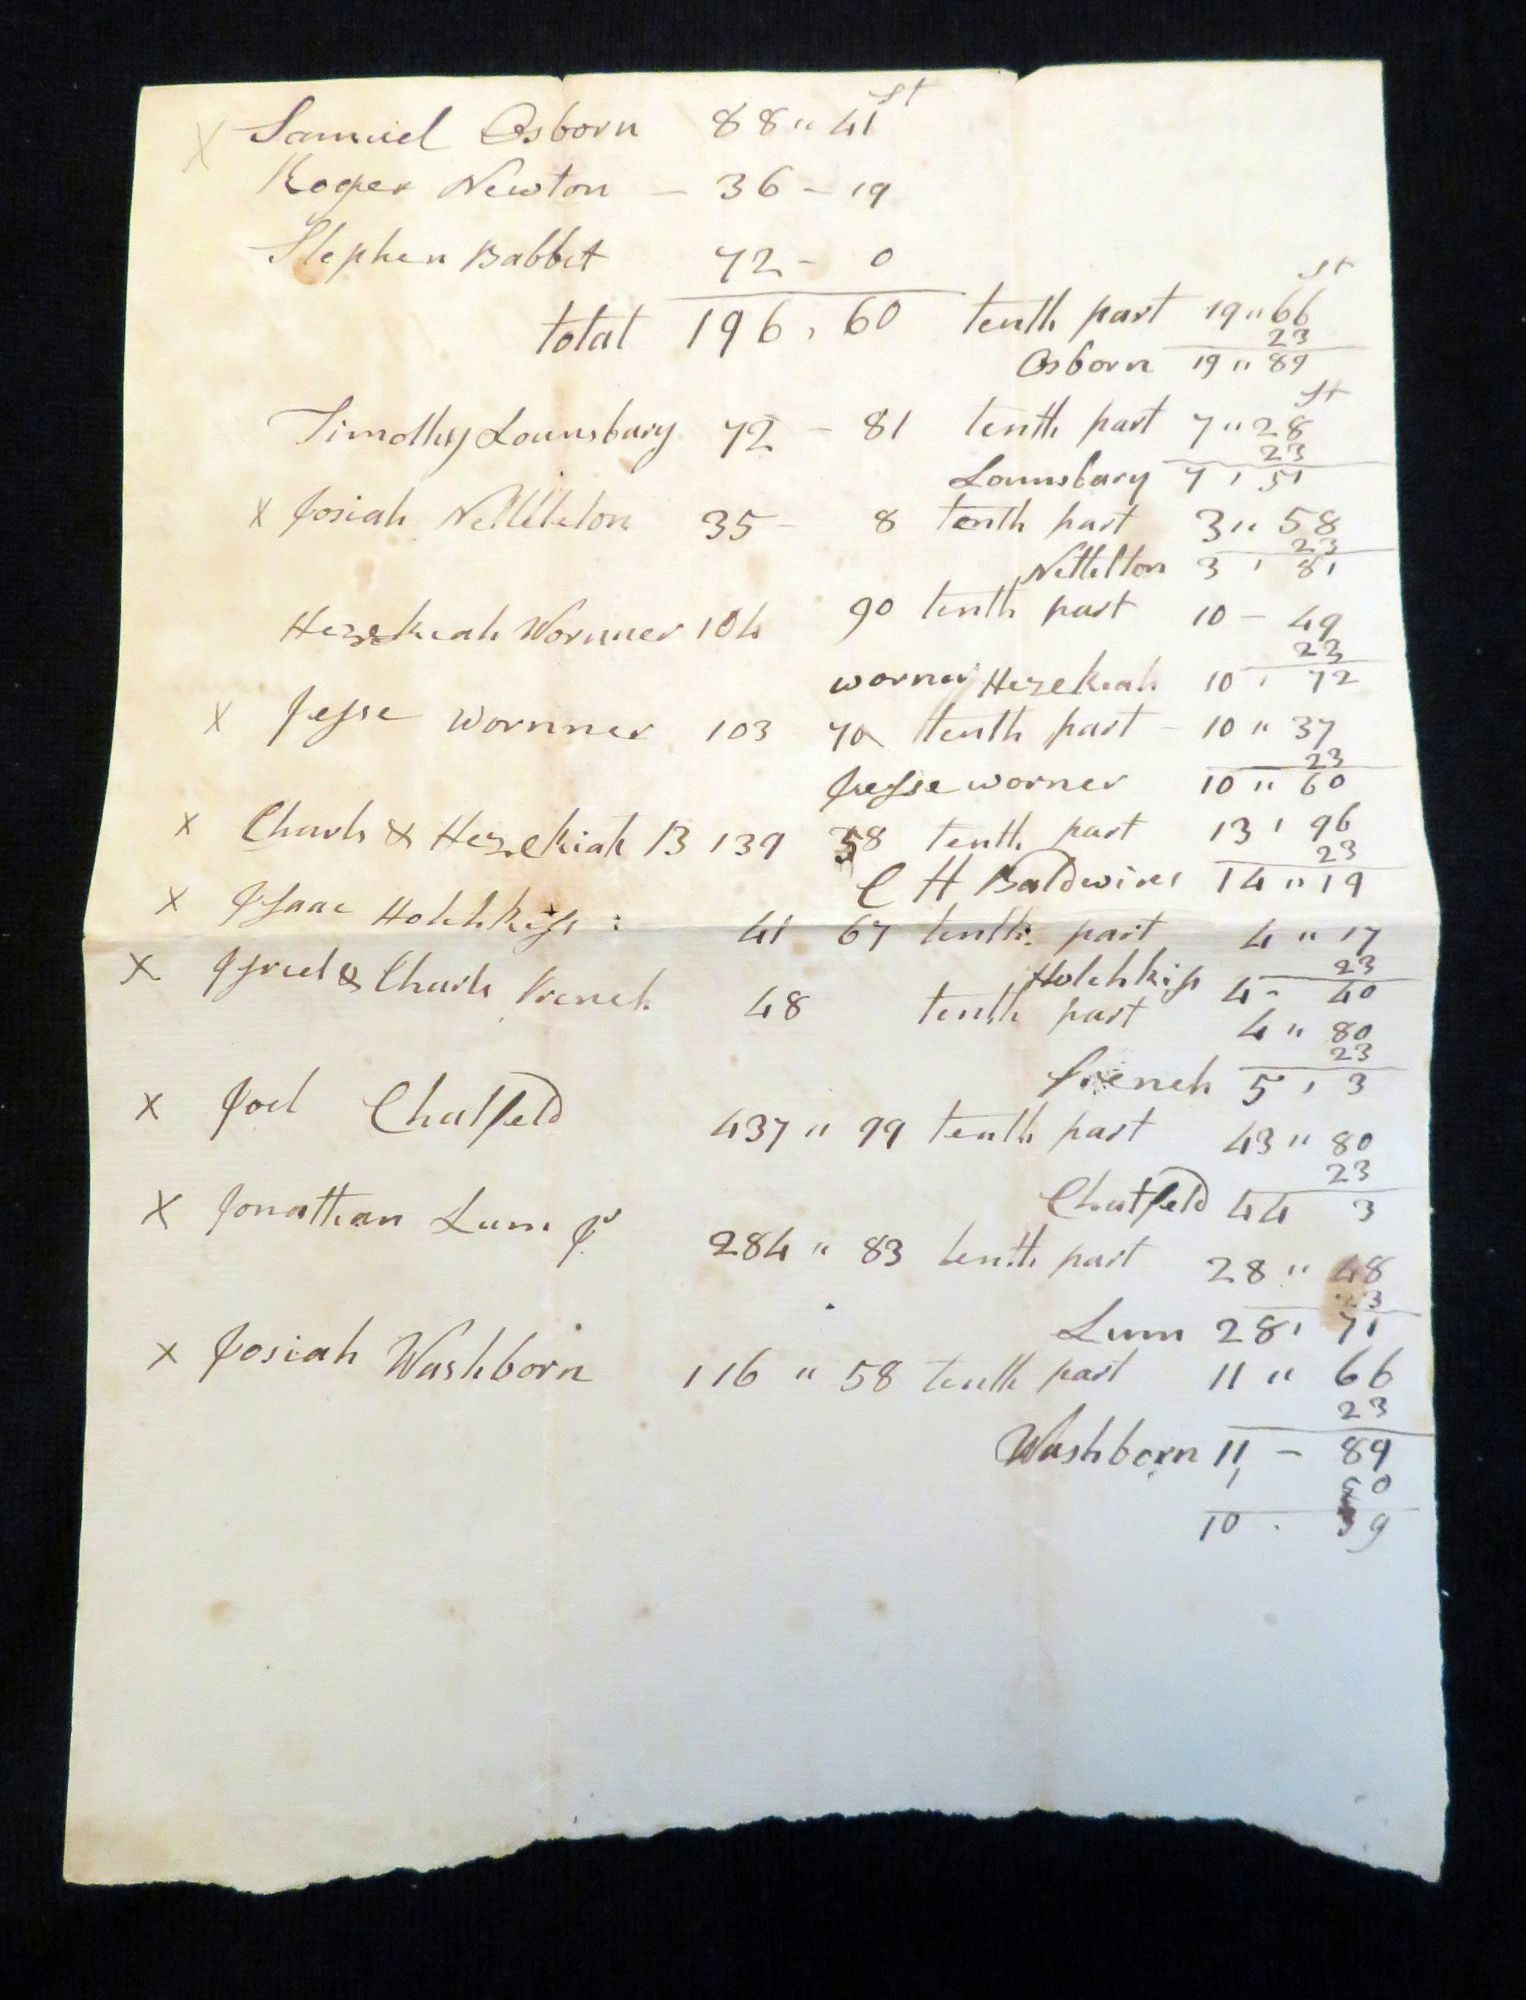 St
X Samuel Osborn 88 " 41
Roger Newton - 36 - 19
Stephen Babbet 72 - 0
St
total 196, 60 tenth part 19 " 66
23
Osborn 19 " 89
St
Timothy Lounsbury 72 - 81 tenth part 7 " 28
23
Lounsbury 7 , 51
X Josiah Nettleton 35 - 8 tenth part 3 " 58
23
Nettelton 3 , 81
Hezekiah Wornner 104 90 tenth part 10 - 49
23
worner Hezekiah 10 , 72
X Jesse Wornner 103 70 tenth part - 10 " 37
23
Jesse worner 10 " 60
X Charls & Hezekiah B 139 58 tenth part 13 , 96
23
C H Baldwins 14 " 19
X Isaac Hotchkiss : 41 67 tenth part 4 " 17
23
Hotchkiss 4 - 40
X Isreel & Charls French 48 tenth part 4 " 80
23
French 5 , 3
X Joel Chatfeld 437 " 99 tenth part 43 " 80
23
Chatfeld 44 3
X Jonathan Lum Jr 284 " 83 tenth part 28 " 48
23
Lum 28 , 71
X Josiah Washborn 116 " 58 tenth part 11 " 66
23
Washborn 11 - 89
1 50
10 . 39